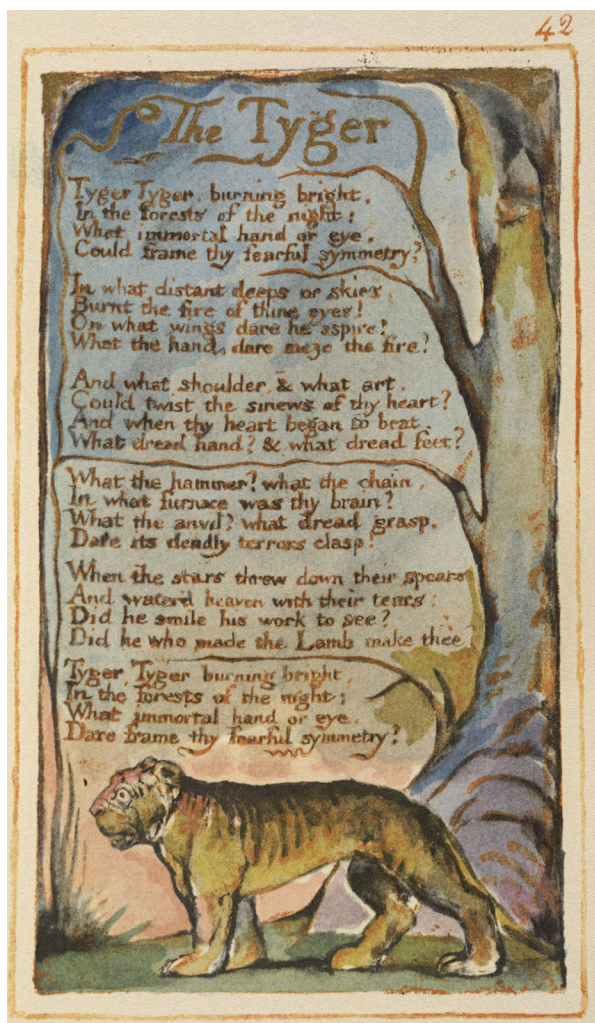 42
The Tyger
Tyger Tyger, burning bright,
In the forests of the night:
What immortal hand or eye,
Could frame thy fearful symmetry?
In what distant deeps or skies,
Burnt the fire of thine eyes!
On what wings dare he aspire!
What the hand, dare sieze the fire?
And what shoulder, & what art,
Could twist the sinews of thy heart?
And when thy heart began to beat,
What dread hand? & what dread feet?
What the hammer? what the chain,
In what furnace was thy brain?
What the anvil? what dread grasp,
Dare its deadly terrors clasp!
When the stars threw down their spears
And water'd heaven with their tears:
Did he smile his work to see?
Did he who made the Lamb make thee?
Tyger, Tyger burning bright,
In the forests of the night;
What immortal hand or eye,
Dare frame thy fearful symmetry?